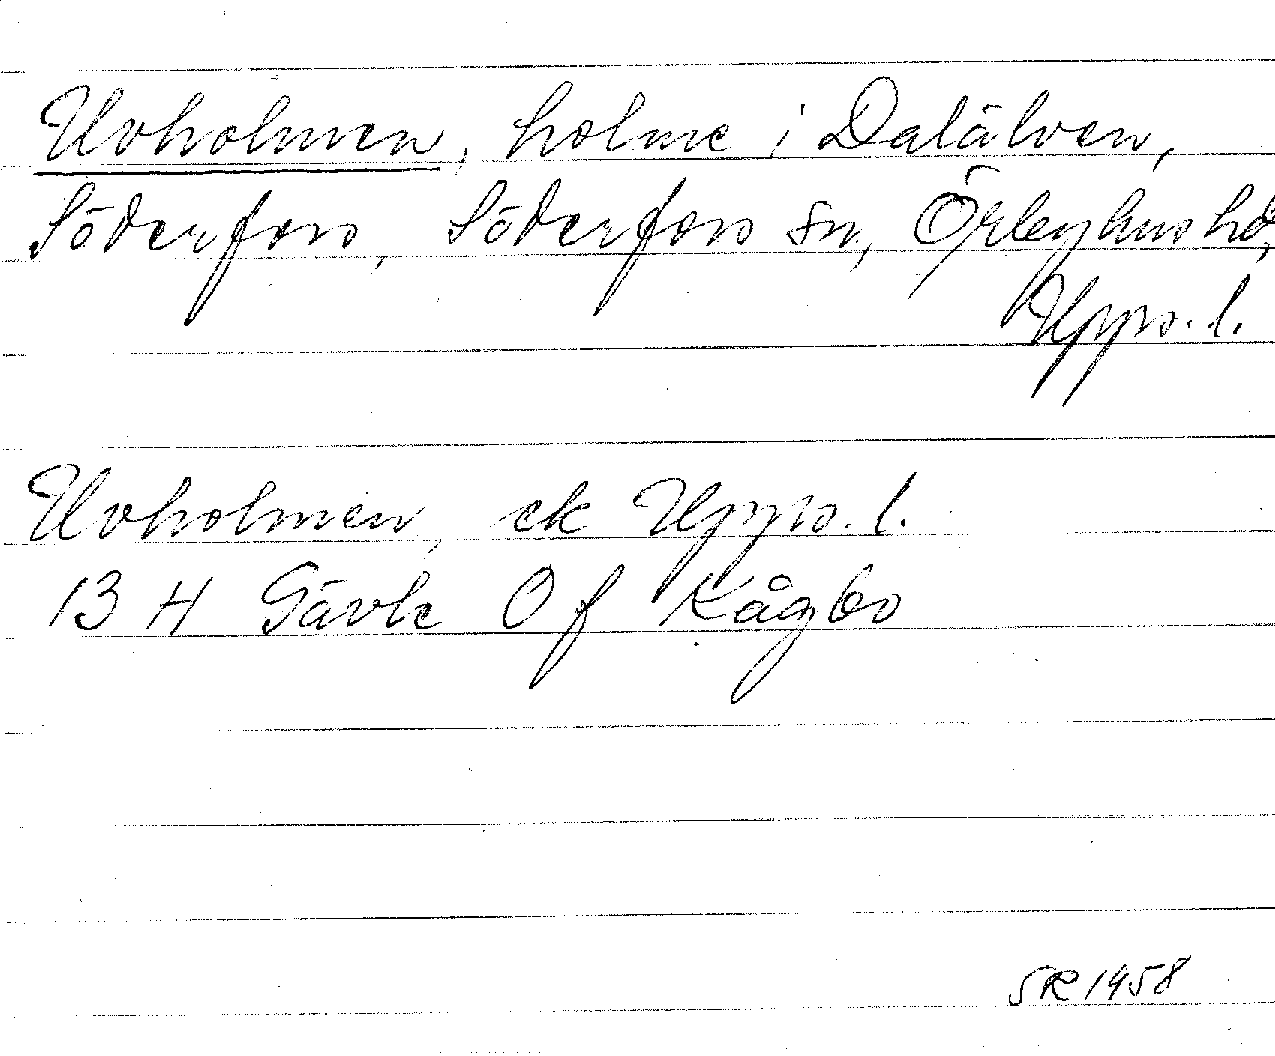 Uvholmen, holme i Dalälven,
Söderfors, Söderfors sn, Örbyhus hd,
Upps. l.
Uvholmen, ek Upps. l.
13 H Gävle 0 f Kågbo
SR 1958